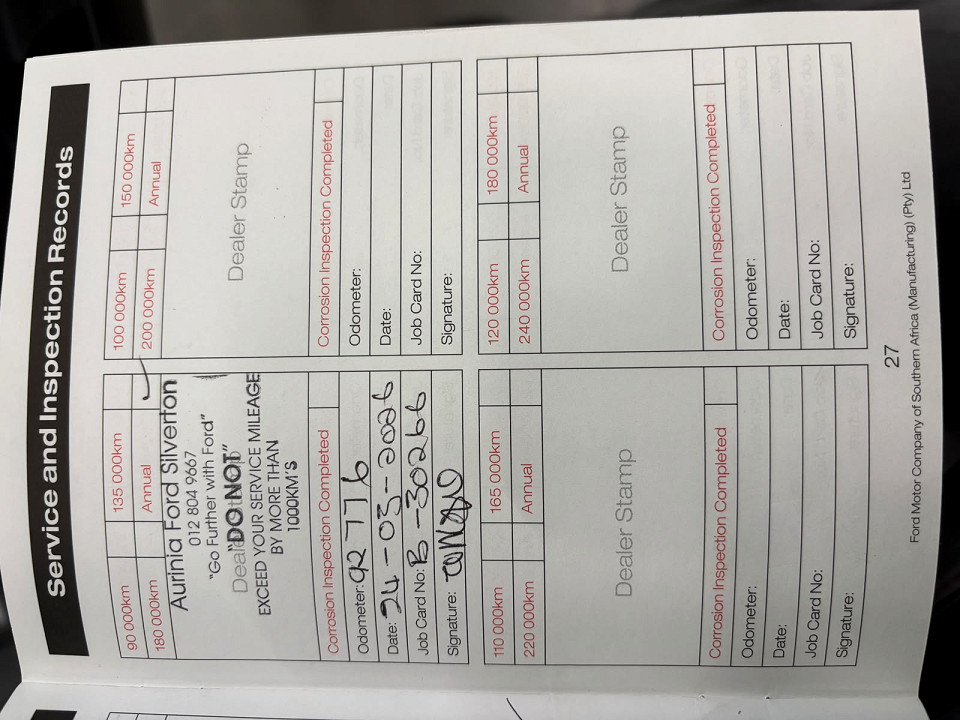 Service and Inspection Records
90 000km 135 000km
180 000km Annual
Aurinia Ford Silverton
012 804 9667
"Go Further with Ford"
Dealer Stamp
"DO NOT"
EXCEED YOUR SERVICE MILEAGE
BY MORE THAN
1000KM'S
Corrosion Inspection Completed
Odometer: 92776
Date: 24-03-2026
Job Card No: B-30266
Signature:
100 000km 150 000km
200 000km Annual
Dealer Stamp
Corrosion Inspection Completed
Odometer:
Date:
Job Card No:
Signature:
110 000km 165 000km
220 000km Annual
Dealer Stamp
Corrosion Inspection Completed
Odometer:
Date:
Job Card No:
Signature:
120 000km 180 000km
240 000km Annual
Dealer Stamp
Corrosion Inspection Completed
Odometer:
Date:
Job Card No:
Signature:
27
Ford Motor Company of Southern Africa (Manufacturing) (Pty) Ltd